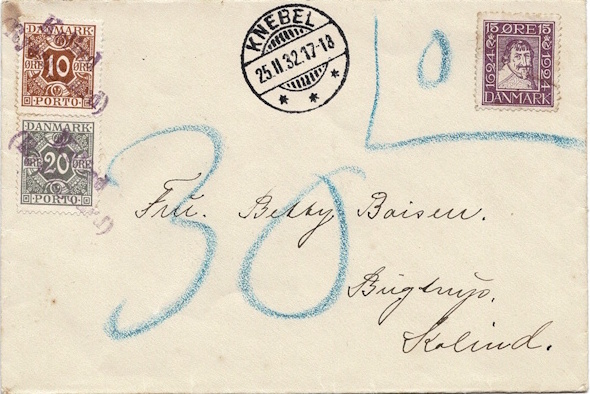 DANMARK
10
ØRE ØRE
PORTO
DANMARK
20
ØRE ØRE
PORTO
KNEBEL
25.11.32.17-18
15 ØRE 15
1624 1924
DANMARK
0
30
Fru. Betty Boisen.
Bugtrup.
Kolind.